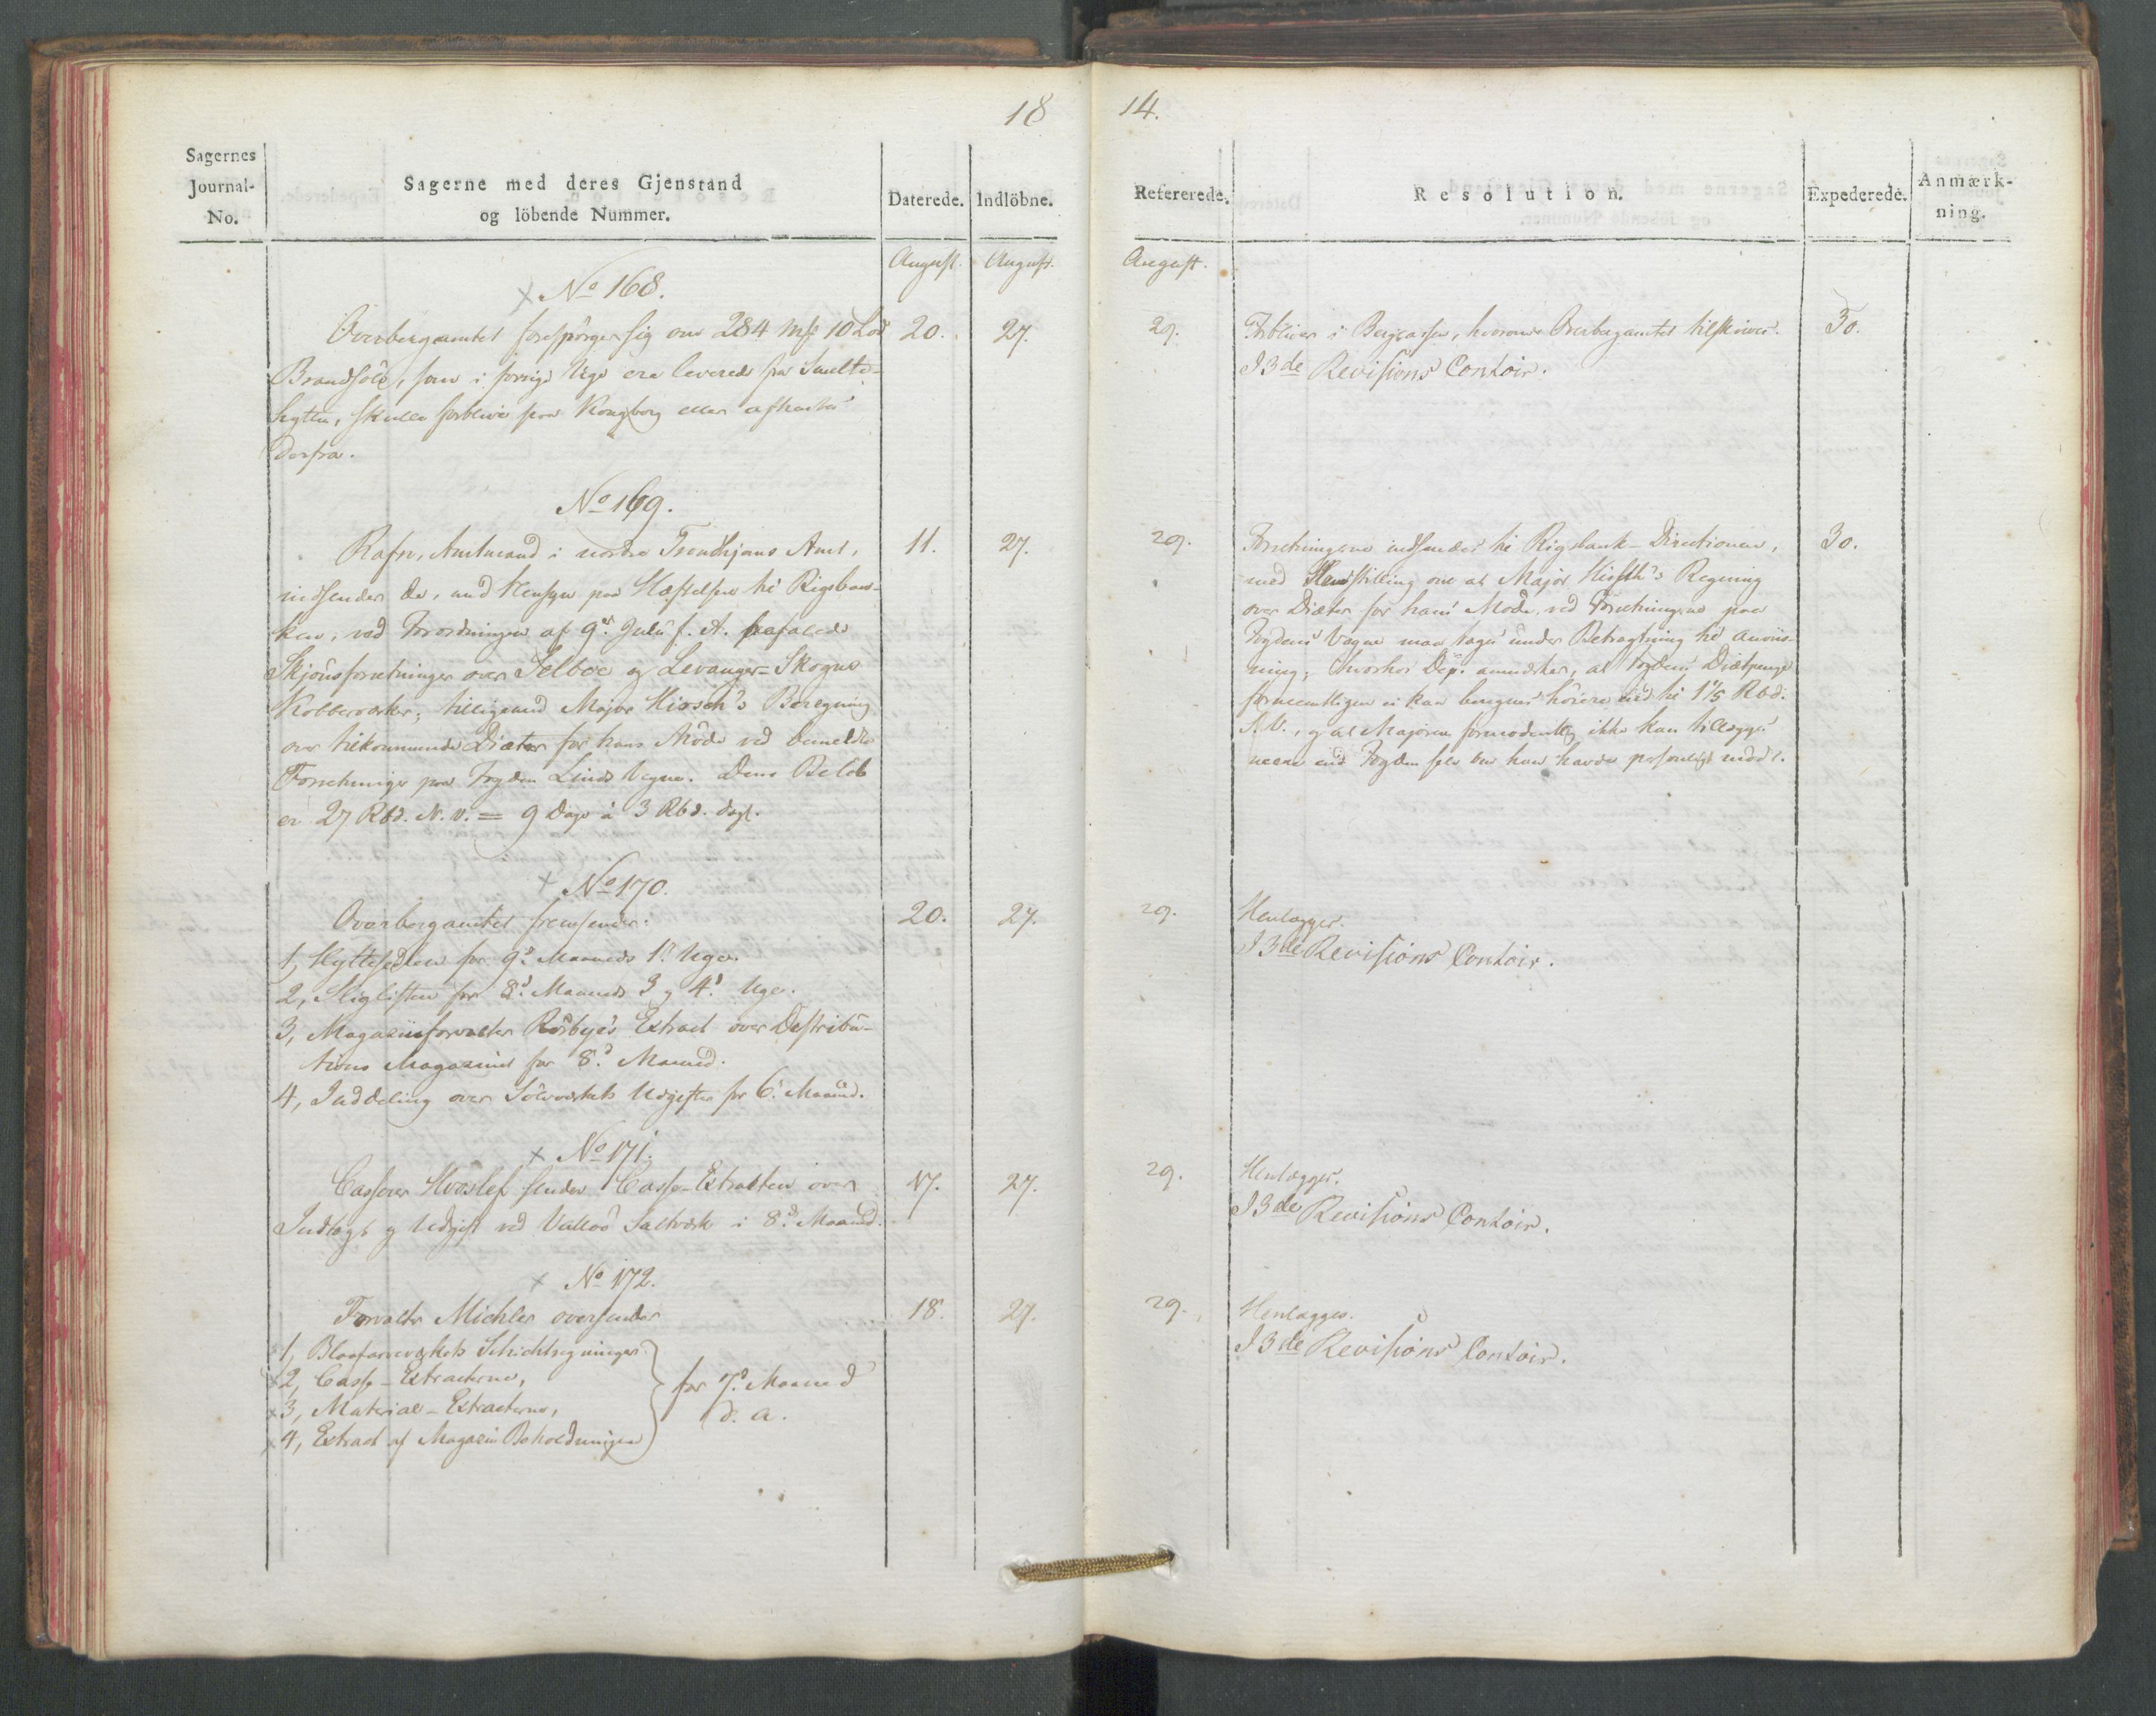 18
14.
Sagernes
Journal-
No.
Sagerne med deres Gjenstand
og löbende Nummer.
Daterede.
Indlöbne.
Refererede.
Resolution.
Expederede.
Anmærk-
ning.
August.
August.
August.
No 168.
Overbergamtet forespörger sig om 284 Mk 10 Lod
Brandsölv, som i forrige Uge ere leverede fra Smelte-
hytten, skulle forblive paa Kongsberg eller afhentes
derfra.
20.
27.
29.
Forbliver i Bergcassen, hvorom Overbergamtet tilskrives.
I 3de Revisions Contoir.
30.
No 169.
Rafn, Amtmand i nordre Trondhjems Amt,
indsender de, med Hensyn paa Hæftelsen til Rigsban-
ken, ved Forordningen af 9de Julii f. A. befalede
Skjönsforretninger over Selboe og Levanger-Skogns
Kobberværker; tilligemed Major Hirsch's Beregning
over tilkommende Diæter for hans Möde ved bemeldte
Forretninger paa Fogden Linds Vegne. Dens Belöb
er 27 Rbd. N. V. = 9 Dage à 3 Rbd. dagl.
11.
27.
29.
Forretningerne indsendes til Rigsbank-Directionen,
med Henstilling om at Major Hirsch's Regning
over Diæter for hans Möde ved Forretningerne paa
Fogdens Vegne maa tages under Betragtning til Anviis-
ning; hvorhos Dep. anmærker, at Fogdens Diætpenge
formeentligen ei kan beregnes höiere end til 1 1/5 Rbd.
S. V., og at Majoren formodentlig ikke kan tillægges
meere end Fogden selv om han havde personligt mödt.
30.
No 170.
Overbergamtet fremsender:
1, Hyttesedlen for 9de Maaneds 1te Uge.
2, Sliglisten for 8de Maaneds 3 og 4de Uge.
3, Magasinforvalter Rosbye's Extract over Destribu-
tions Magasinet for 8de Maaned.
4, Inddeling over Sölvværkets Udgifter for 6te Maaned.
20.
27.
29.
Henlægges.
I 3de Revisions Contoir.
No 171.
Casserer Hvoslef sender Casse-Extracten over
Indtægt og Udgift ved Valloö Saltværk i 8de Maaned.
17.
27.
29.
Henlægges.
I 3de Revisions Contoir.
No 172.
Forvalter Michler oversender
1, Blaafarveværkets Schichtregninger
2, Casse-Extracterne,
3, Material-Extracterne,
4, Extract af Magasin Beholdningen
for 7de Maaned
d. A.
18.
27.
29.
Henlægges.
I 3de Revisions Contoir.